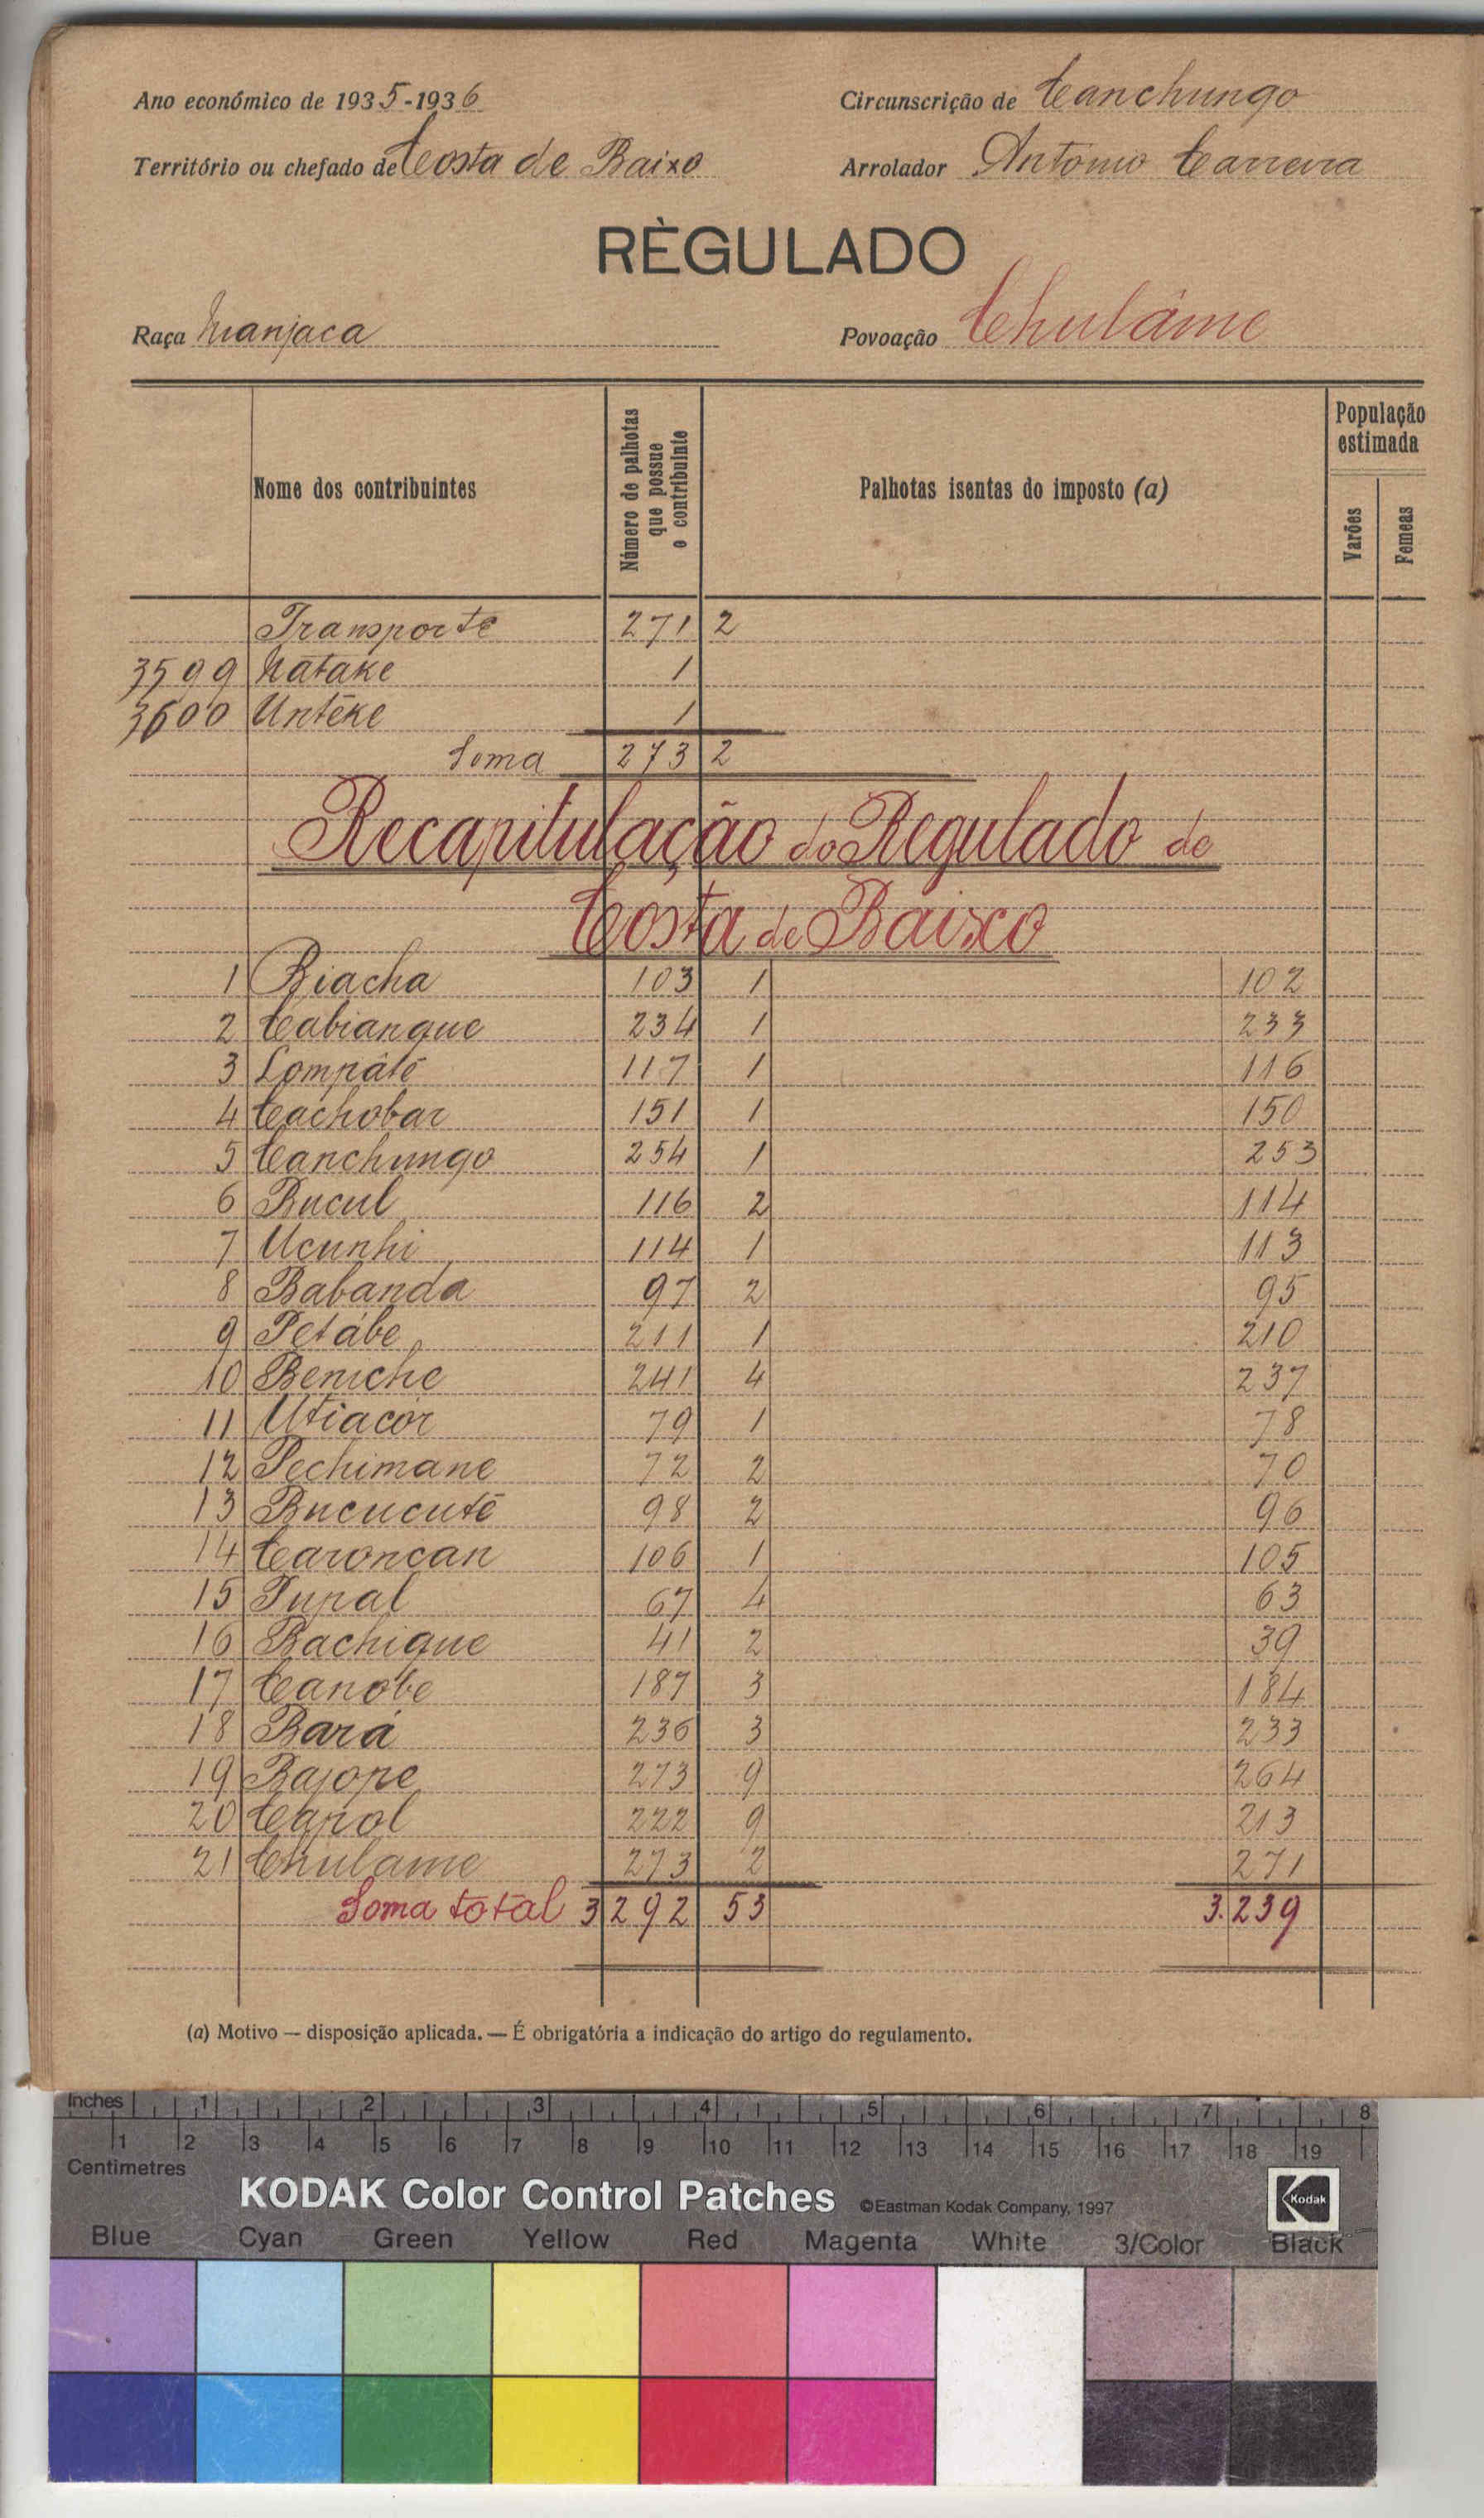 Ano económico de 1935-1936 Circunscrição de Canchungo
Território ou chefado de Costa de Baixo Arrolador António Carreira
RÈGULADO
Raça Manjaca Povoação Chulâme
Nome dos contribuintes
Número de palhotas que possue o contribuinte
Palhotas isentas do imposto (a)
População estimada
Varões
Femeas
Transporte 271 2
3599 Natake 1
3600 Untéke 1
Soma 273 2
Recapitulação do Regulado de
Costa de Baixo
1 Biacha 103 1 102
2 Cabianque 234 1 233
3 Lompâté 117 1 116
4 Cachobar 151 1 150
5 Canchungo 254 1 253
6 Bucul 116 2 114
7 Ucunhi 114 1 113
8 Babanda 97 2 95
9 Petábe 211 1 210
10 Beniche 241 4 237
11 Utiacór 79 1 78
12 Pechimane 72 2 70
13 Bucucuté 98 2 96
14 Caroncan 106 1 105
15 Tupal 67 4 63
16 Bachique 41 2 39
17 Canobe 187 3 184
18 Bará 236 3 233
19 Bajope 273 9 264
20 Capol 222 9 213
21 Chulame 273 2 271
Soma total 3292 53 3.239
(a) Motivo — disposição aplicada. — É obrigatória a indicação do artigo do regulamento.
Inches 1 2 3 4 5 6 7 8
1 2 3 4 5 6 7 8 9 10 11 12 13 14 15 16 17 18 19
Centimetres
KODAK Color Control Patches ©Eastman Kodak Company, 1997 Kodak
Blue Cyan Green Yellow Red Magenta White 3/Color Black